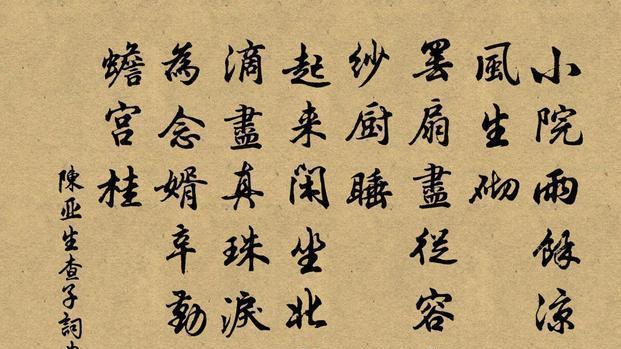 小院雨餘涼
風生砌
罢扇盡從容
紗厨睡
起来閑坐北
滴盡真珠淚
為念婿辛勤
蟾宫桂
陳亚生查子詞